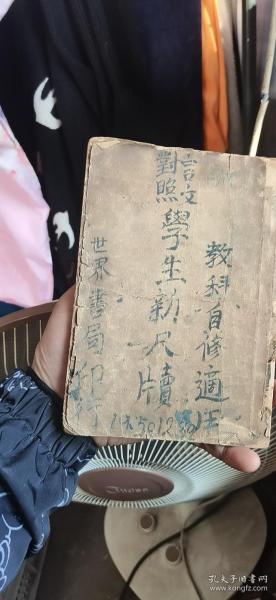 教科自修適用
言文
對照
學生新尺牘
世界書局印行
孔夫子旧书网